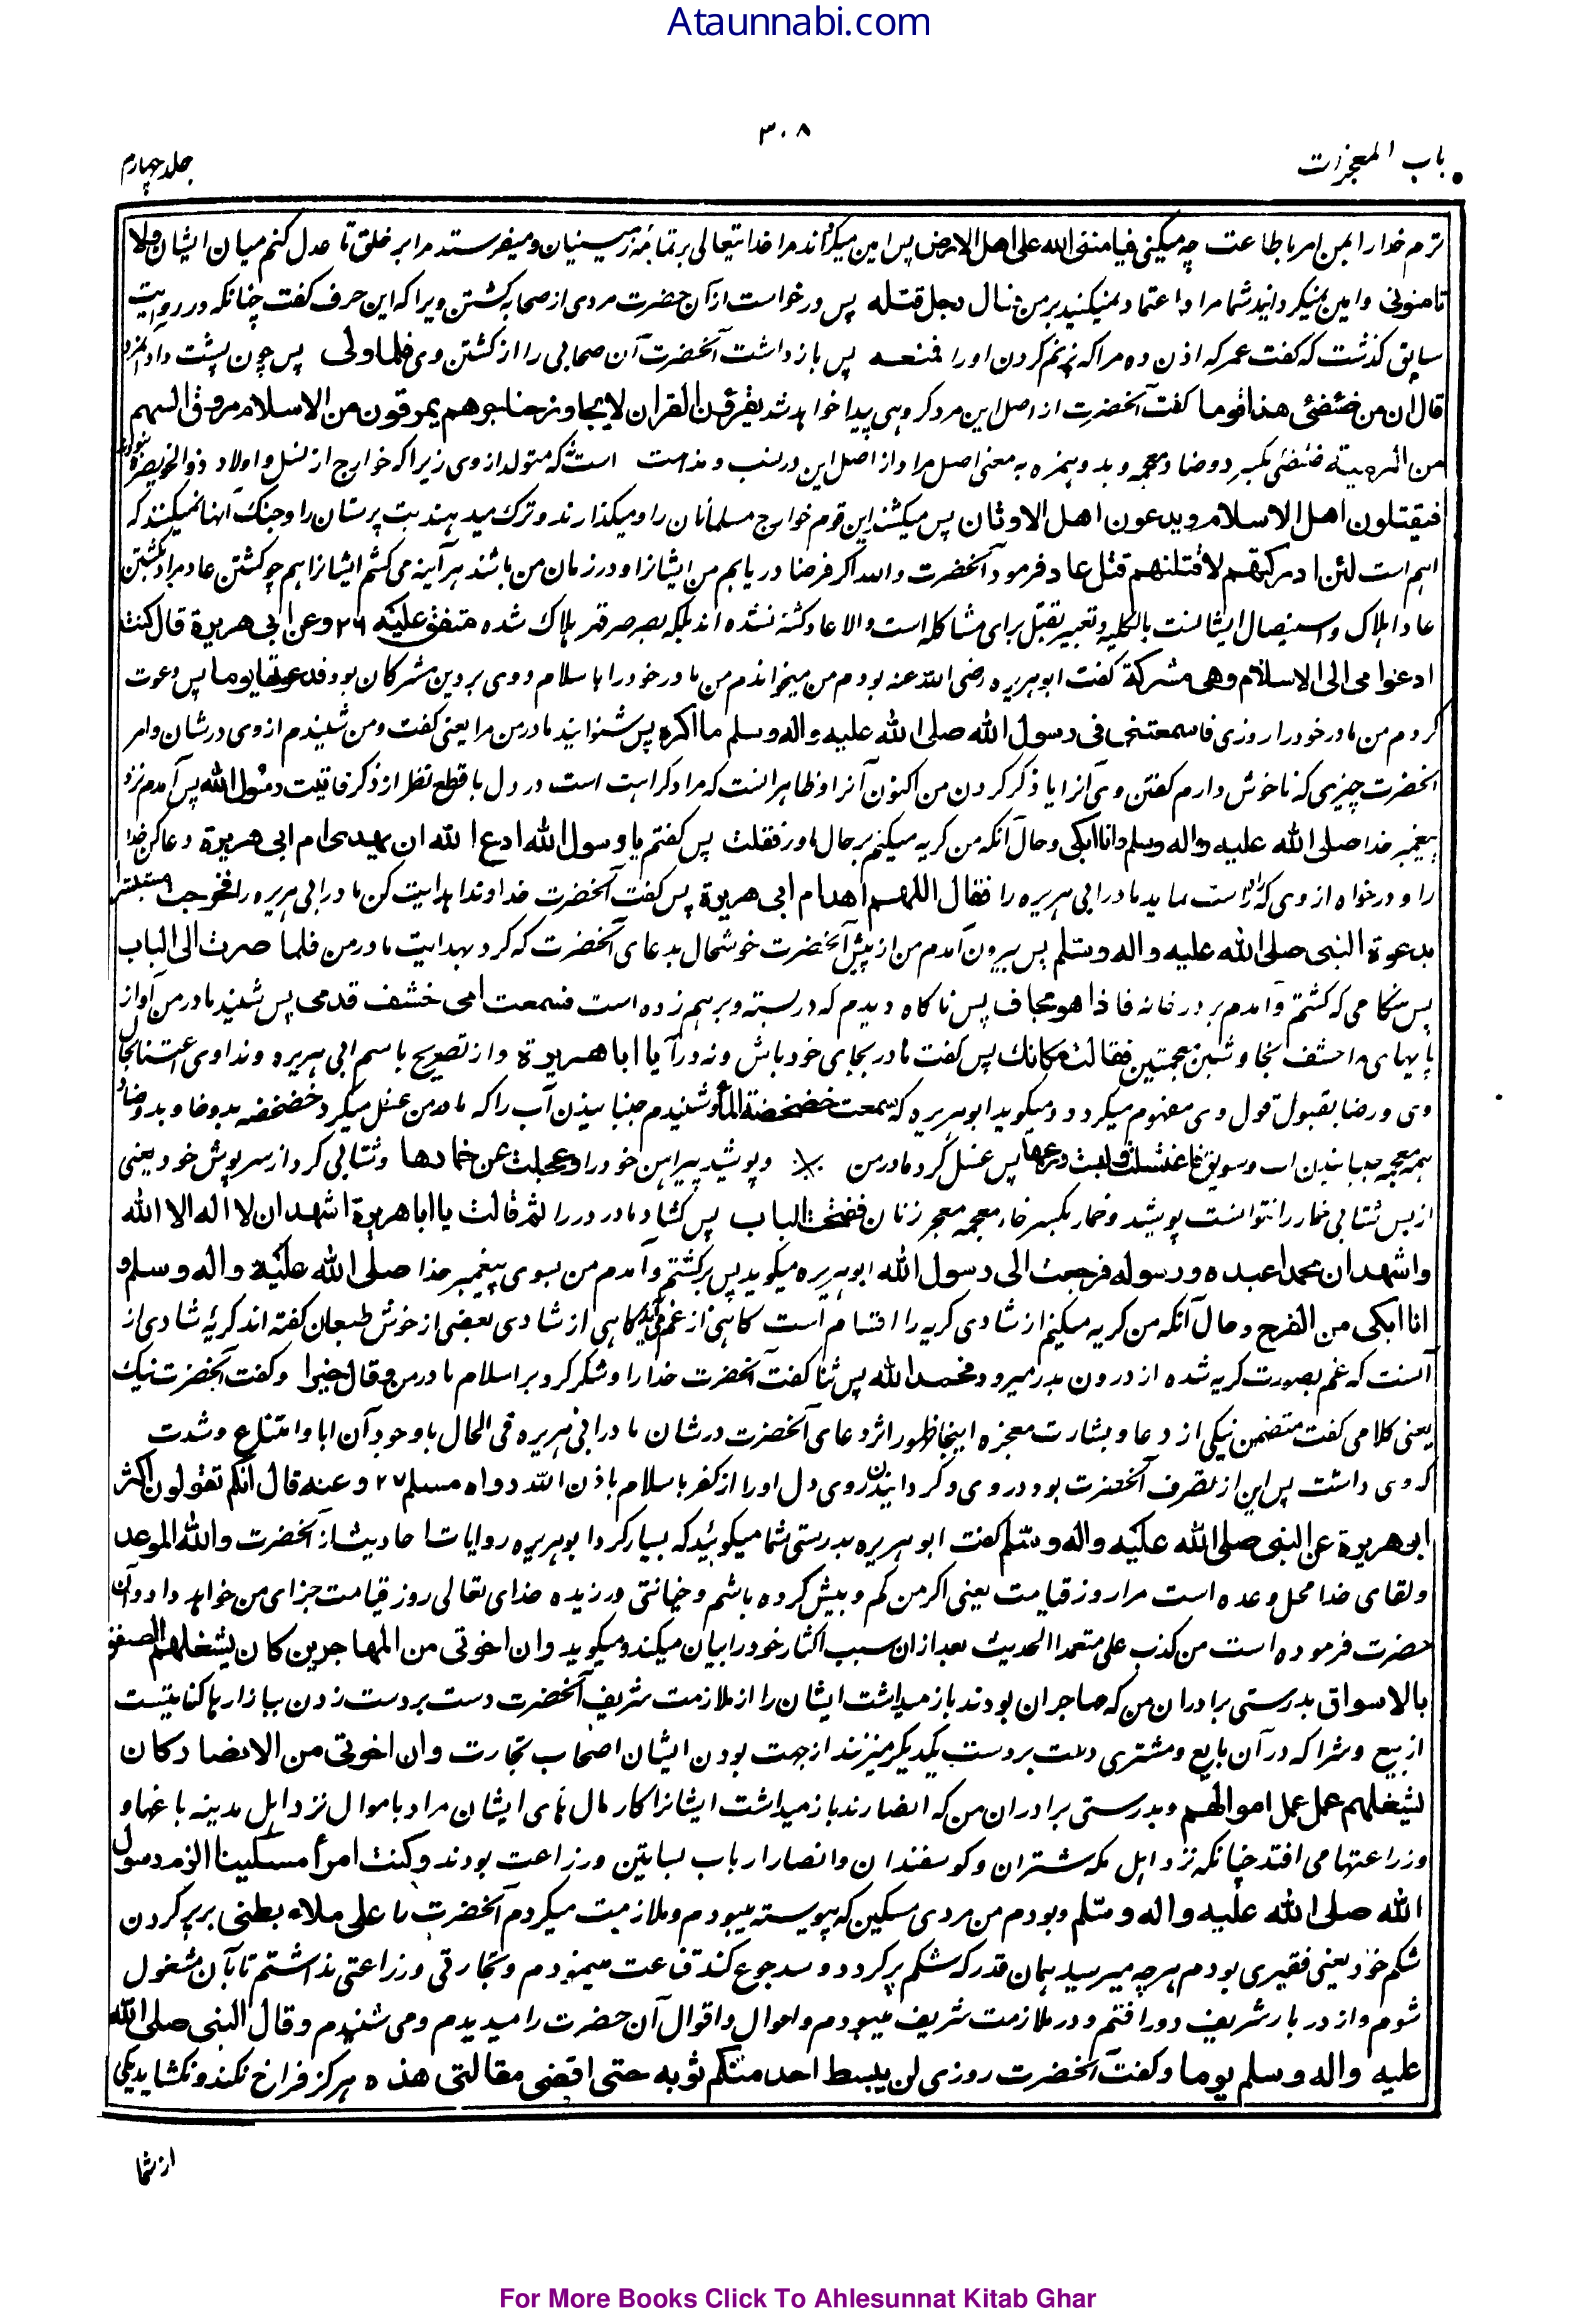 Ataunnabi.com
۳۰۸
باب المعجزات
جلد چهارم
ترم خدا را بمن امر باطاعت چه میکنی فیامننی الله علی اهل الارض پس امین میکرداند مرا خدایتعالی بر تمامهٔ زمینیان و میفرستد مرا بر خلق تا عدل کنم میان ایشان ولا
تامنونی وامین نمیکردانید شما مرا و اعتماد نمیکنید بر من فسال رجل قتله پس درخواست از آن حضرت مردی از صحابه کشتن ویرا که این حرف کفت چنانکه در روایت
سابق کذشت که کفت عمر که اذن ده مرا که بزنم کردن او را فمنعه پس باز داشت آنحضرت آن صحابی را از کشتن وی فلما ولی پس چون پشت داد آنمرد
قال ان من ضئضئ هذا قوما کفت آنحضرت از اصل این مرد کروهی پیدا خواهد شد یقرؤن القران لا یجاوز حناجرهم یمرقون من الاسلام مروق السهم
من الرمیة ضئضئ بکسر دو ضاد معجمه و بدو همزه به معنی اصل مراد از اصل این در نسب و مذهب است نه که متولد از وی زیرا که خوارج از نسل و اولاد ذو الخویصره نبودند
فیقتلون اهل الاسلام ویدعون اهل الاوثان پس میکشند این قوم خوارج مسلمانان را و میکذارند و ترک میدهند بت پرستان را و جنک آنها نمیکنند که
اهم است لئن ادرکتهم لاقتلنهم قتل عاد فرمود آنحضرت والله اکر فرضا دریابم من ایشانرا و در زمان من باشند هر آینه می کشم ایشانرا هم چو کشتن عاد مراد بکشتن
عاد اهلاک و استیصال ایشانست بالکلیه و تعبیر بقتل برای مشاکله است والا عاد کشته نشده اند بلکه بصرصر قهر هلاک شده متفق علیه ۲۶ وعن ابی هریرة قال کنت
ادعوا می الی الاسلام وهی مشرکة کفت ابو هریره رضی الله عنه بودم من میخواندم من مادر خود را با سلام و وی بر دین مشرکان بود فدعوتها یوما پس دعوت
کردم من مادر خود را روزی فاسمعتنی فی رسول الله صلی الله علیه واله وسلم ما اکره پس شنوانید مادر من مرا یعنی کفت و من شنیدم از وی در شان و امر
آنحضرت چیزی که ناخوش دارم کفتن وی آنرا یا ذکر کردن من اکنون آنرا و ظاهر انست که مراد کراهت است در دل با قطع نظر از ذکر فاتیت رسول الله پس آمدم نزد
پیغمبر خدا صلی الله علیه واله وسلم وانا ابکی و حال آنکه من کریه میکنم بر حال مادر فقلت پس کفتم یا رسول الله ادع الله ان یهدی ام ابی هریرة دعا کن خدا
را و درخواه از وی که راه راست نماید مادر ابی هریره را فقال اللهم اهد ام ابی هریرة پس کفت آنحضرت خداوندا هدایت کن مادر ابی هریره را فخرجت مستبشرا
بدعوة النبی صلی الله علیه واله وسلم پس بیرون آمدم من از پیش آنحضرت خوشحال بدعای آنحضرت که کرد بهدایت مادر من فلما صرت الی الباب
پس هنکامی که کشتم و آمدم بر در خانه فاذا هو مجاف پس ناکاه دیدم که در بسته و بر هم زده است فسمعت امی خشف قدمی پس شنید مادر من آواز
پایهای مرا خشف بخا و شین معجمتین فقالت مکانک پس کفت مادر بجای خود باش و نه درآ یا ابا هریرة و از تصریح باسم ابی هریره و ندا وی اعتنا بحال
وی و رضا بقبول قول وی مفهوم میکردد و میکوید ابو هریره که سمعت خضخضة الماء و شنیدم جنبانیدن آب را که مادر من غسل میکرد خضخضه بدو خا و بدو ضاد
همه معجمه جنبانیدن اب و سویق فاغتسلت ولبست درعها پس غسل کرد مادر من و پوشید پیراهن خود را وعجلت عن خمارها و شتابی کرد از سرپوش خود یعنی
از بس شتابی خمار را نتوانست پوشید و خمار بکسر خاء معجمه معجر زنان ففتحت الباب پس کشاد مادر در را ثم قالت یا ابا هریرة اشهد ان لا اله الا الله
واشهد ان محمدا عبده ورسوله فرجعت الی رسول الله ابو هریره میکوید پس برکشتم و آمدم من بسوی پیغمبر خدا صلی الله علیه واله وسلم و
انا ابکی من الفرح و حال آنکه من کریه میکنم از شادی کریه را اقسام است کاهی از غم می آید و کاهی از شادی بعضی از خوش طبعان کفته اند کریه شادی از
آنست که غم بصورت کریه شده از درون بدر میرود فحمد الله پس ثنا کفت آنحضرت خدا را و شکر کرد بر اسلام مادر من وقال خیرا و کفت آنحضرت نیک
یعنی کلامی کفت متضمن نیکی از دعا و بشارت معجزه اینجا ظهور اثر دعای آنحضرت در شان مادر ابی هریره فی الحال با وجود آن ابا و امتناع و شدت
که وی داشت پس این از تصرف آنحضرت بود در وی و کردانیدن روی دل او را از کفر باسلام باذن الله رواه مسلم ۲۷ وعنه قال انکم تقولون اکثر
ابو هریرة عن النبی صلی الله علیه واله وسلم کفت ابو هریره بدرستی شما میکوئید که بسیار کرد ابو هریره روایات احادیث از آنحضرت والله الموعد
ولقای خدا محل وعده است مرا روز قیامت یعنی اکر من کم و بیش کرده باشم و خیانتی ورزیده خدای تعالی روز قیامت جزای من خواهد داد و آن
حضرت فرموده است من کذب علی متعمدا الحدیث بعد ازان سبب اکثار خود را بیان میکند و میکوید وان اخوتی من المهاجرین کان یشغلهم الصفق
بالاسواق بدرستی برادران من که مهاجران بودند باز میداشت ایشان را از ملازمت شریف آنحضرت دست بر دست زدن ببازارها کنایتست
از بیع و شرا که در آن بایع و مشتری دست بر دست یکدیکر میزنند از جهت بودن ایشان اصحاب تجارت وان اخوتی من الانصار کان
یشغلهم عمل اموالهم و بدرستی برادران من که انصارند باز میداشت ایشانرا کار مال های ایشان مراد باموال نزد اهل مدینه باغها و
وزراعتها می افتد چنانکه نزد اهل مکه شتران و کوسفندان و انصار ارباب بساتین و زراعت بودند وکنت امرأ مسکینا الزم رسول
الله صلی الله علیه واله وسلم وبودم من مردی مسکین که پیوسته میبودم و ملازمت میکردم آنحضرت را علی ملاء بطنی بر پر کردن
شکم خود یعنی فقیری بودم هر چه میرسید همان قدر که شکم پر کردد و سد جوع کند قناعت مینمودم و تجارتی و زراعتی نداشتم تا بآن مشغول
شوم و از دربار شریف دور افتم و در ملازمت شریف میبودم و احوال و اقوال آن حضرت را میدیدم و می شنیدم وقال النبی صلی الله
علیه واله وسلم یوما وکفت آنحضرت روزی لن یبسط احد منکم ثوبه حتی اقضی مقالتی هذه هرکز فراخ نکند و نکشاید یکی
از شما
For More Books Click To Ahlesunnat Kitab Ghar